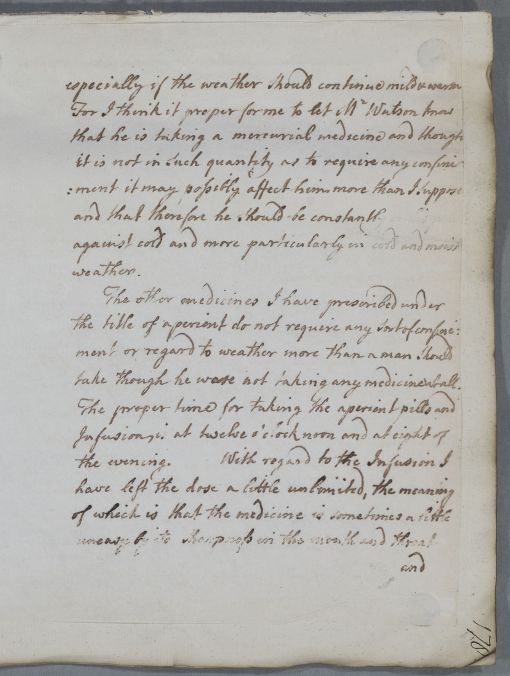 especially if the weather should continue mild & warm
For I think it proper for me to let Mr Watson know
that he is taking a mercurial medicine and though
it is not in such quantity as to require any confine
:ment it may possibly affect him more than I suppose
and that therefore he should be constantly
against cold and more particularly in cold and moist
weather.
The other medicines I have prescribed under
the title of aperient do not require any sort of confine:
ment or regard to weather more than a man should
take though he were not taking any medicine at all.
The proper time for taking the aperient pills and
Infusion is at twelve o'clock noon and at eight of
the evening. With regard to the Infusion I
have left the dose a little unlimited, the meaning
of which is that the medicine is sometimes a little
uneasy by its sharpness in the mouth and throat
and
178